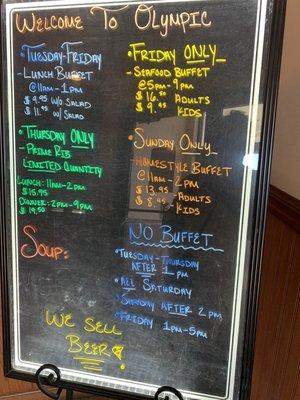 Welcome To Olympic
Tuesday-Friday
-Lunch Buffet
@11am-1pm
$9.95 w/o Salad
$11.45 w/ Salad
Thursday ONLY
-Prime Rib
Limited Quantity
Lunch: 11am-2pm
$15.95
Dinner: 2pm-9pm
$19.50
Soup:
We Sell
Beer
Friday ONLY
-Seafood Buffet
@5pm-9pm
$16.50 Adults
$9.45 Kids
Sunday Only
-Homestyle Buffet
@11am-2pm
$13.95 Adults
$8.45 Kids
NO Buffet
Tuesday-Thursday
After 1pm
All Saturday
Sunday After 2pm
Friday 1pm-5pm